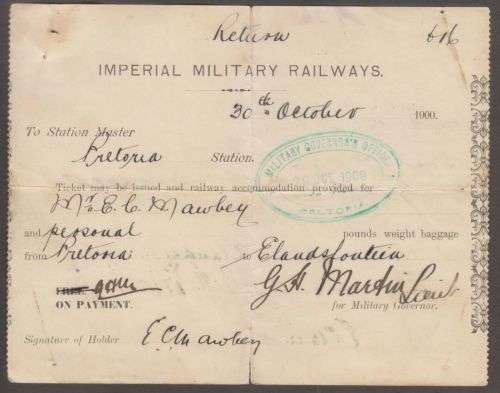 Return 616
IMPERIAL MILITARY RAILWAYS.
30th October 1900.
To Station Master
Pretoria Station.
MILITARY GOVERNOR'S OFFICE
OCT 1900
PRETORIA
Ticket may be issued and railway accommodation provided for
Mr E. C. Mawbey
and personal pounds weight baggage
from Pretoria to Elandsfontein
G. H. Martin Lieut
ON PAYMENT. for Military Governor.
Signature of Holder E C Mawbey